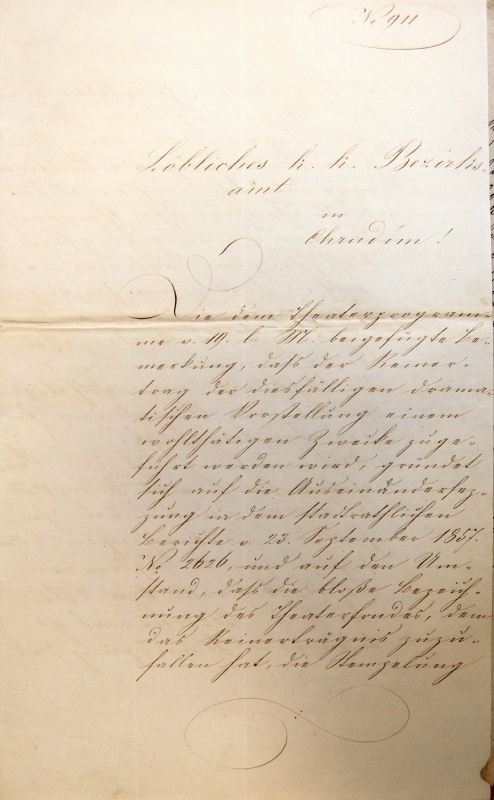 No 911
Löbliches k. k. Bezirks-
amt
in
Chrudim!
Die dem Theaterprogram-
me v. 19. l. M. beigefügte Be-
merkung, daß der Reiner-
trag der diesfälligen drama-
tischen Vorstellung einem
wohlthätigen Zwecke zuge-
führt werden wird, gründet
sich auf die Auseinanderset-
zung in dem stadträthlichen
Berichte v. 23. September 1857.
No 2626, und auf den Um-
stand, daß die bloße Bezeich-
nung des Theaterfondes, dem
das Reinerträgnis zuzu-
fallen hat, die Stempelung